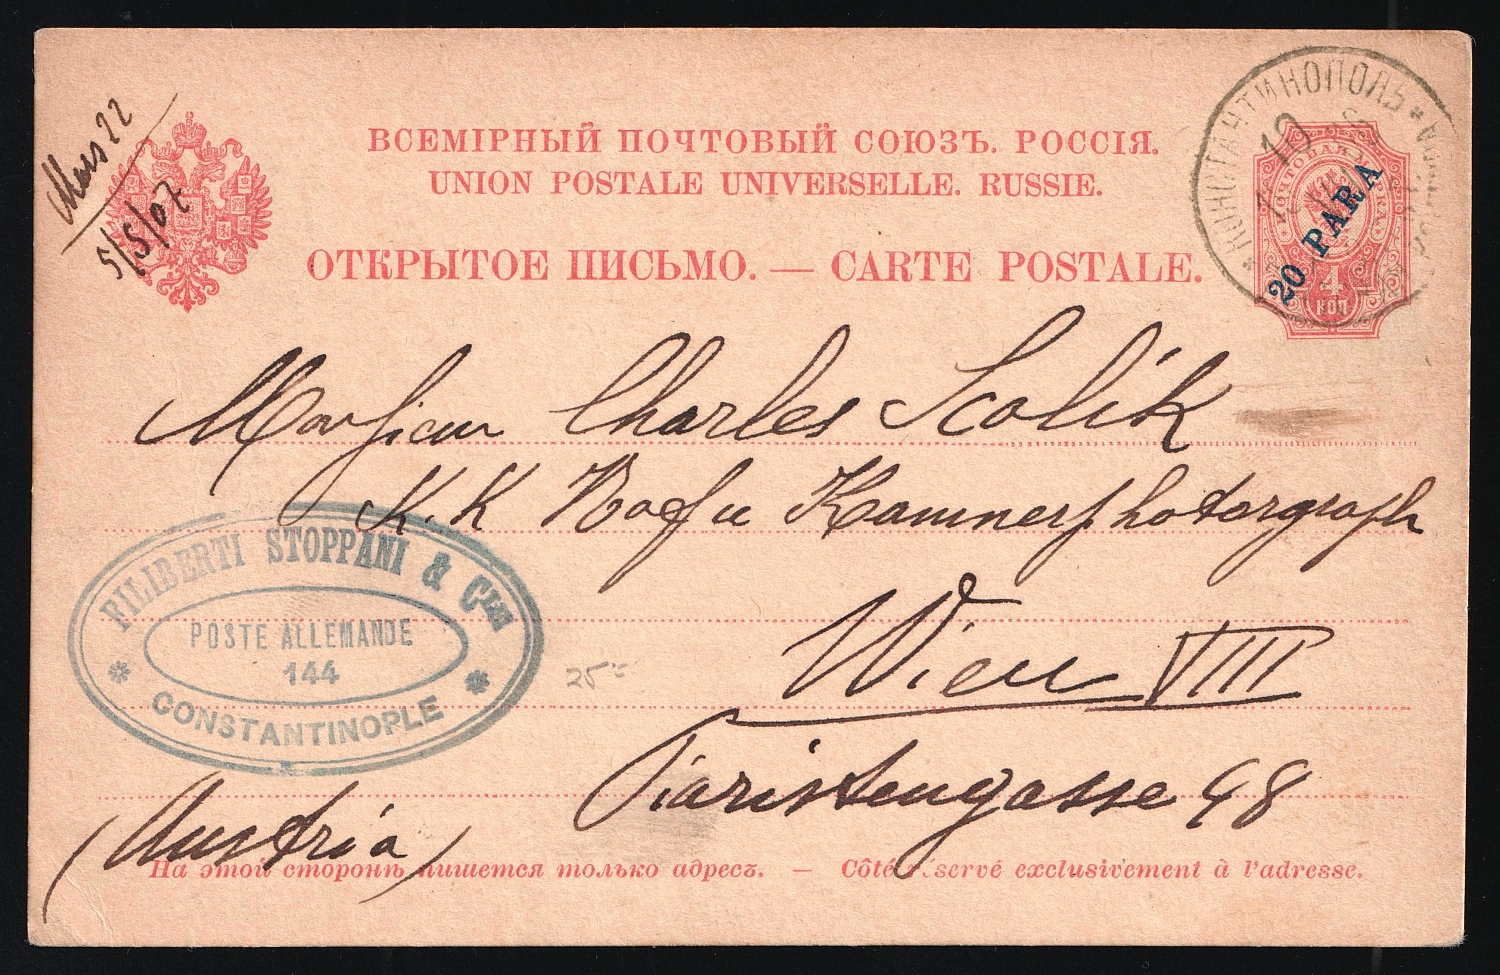 5/5/07
ВСЕМІРНЫЙ ПОЧТОВЫЙ СОЮЗЪ. РОССІЯ.
UNION POSTALE UNIVERSELLE. RUSSIE.
ОТКРЫТОЕ ПИСЬМО. — CARTE POSTALE.
КОНСТАНТИНОПОЛЬ
10
ПОЧТОВАЯ МАРКА
20 PARA
4
КОП
Monsieur Charles Scolik
K. K Kammerphotograph
Wien VIII
Piaristengasse 48
(Austria)
FILIBERTI STOPPANI & Cie
POSTE ALLEMANDE
144
CONSTANTINOPLE
25
На этой сторонѣ пишется только адресъ. — Côté réservé exclusivement à l'adresse.